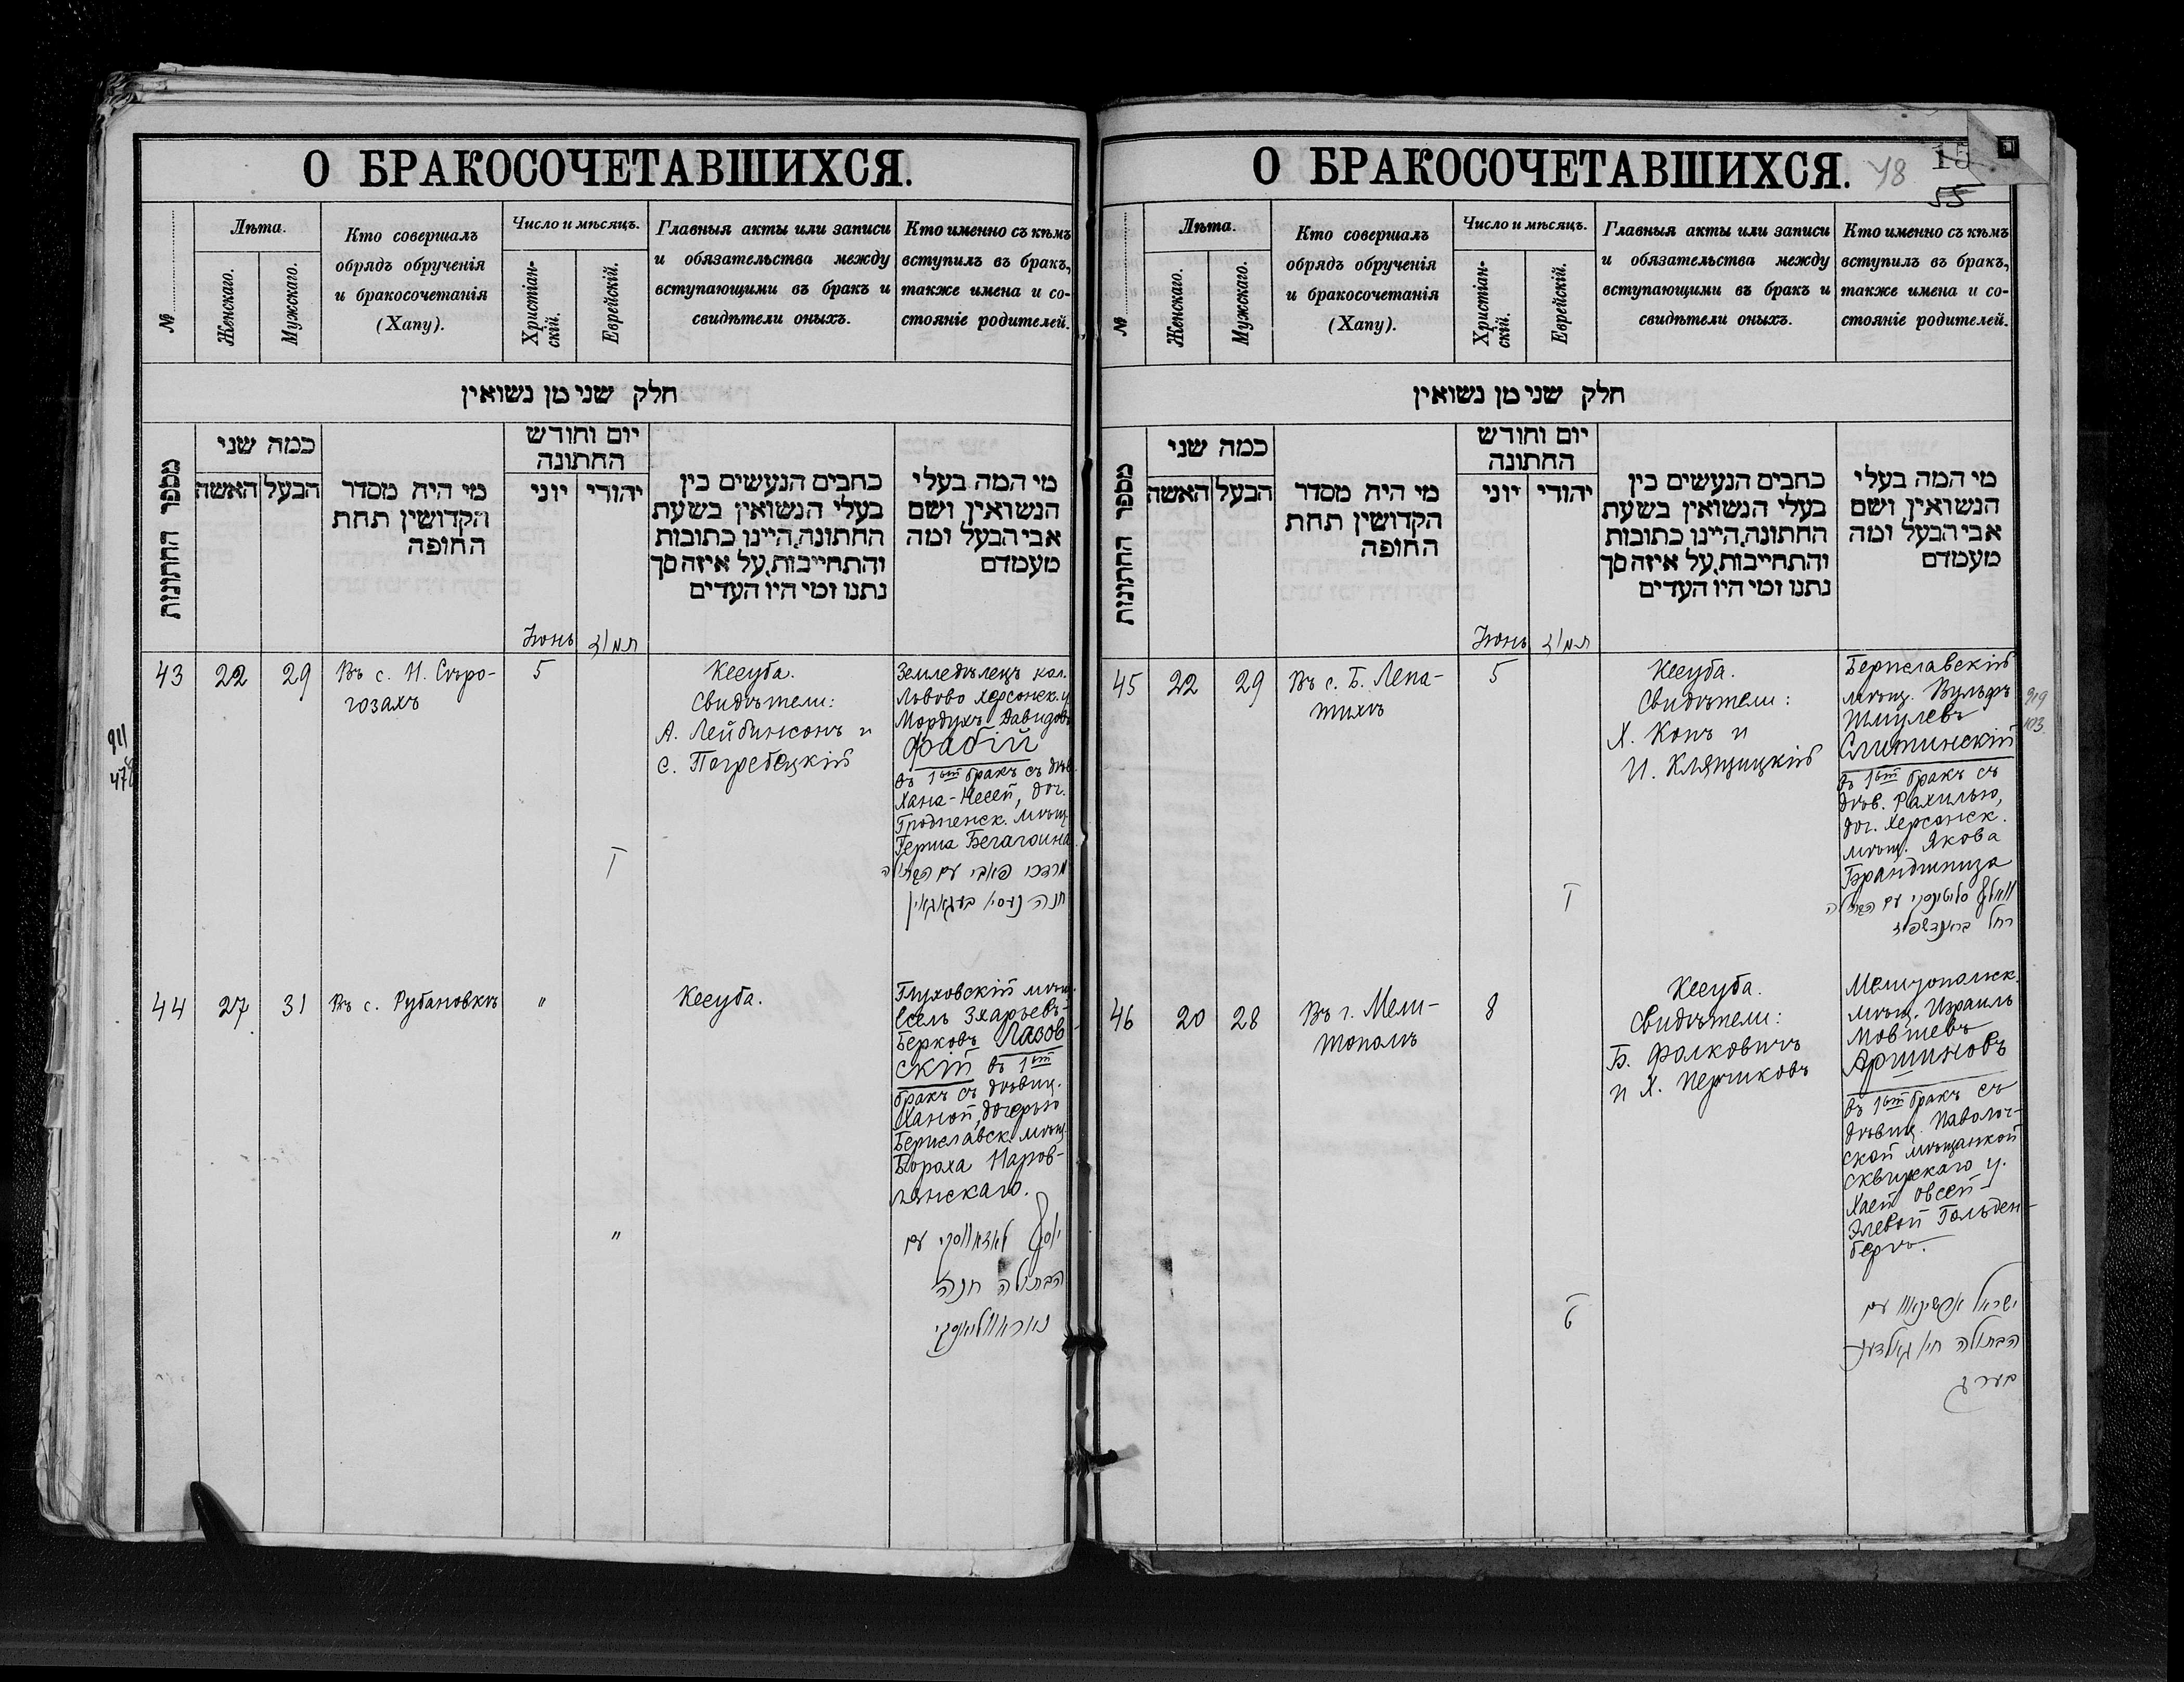 О БРАКОСОЧЕТАВШИХСЯ.
№
Лѣта.
Женскаго.
Мужскаго.
Кто совершалъ
обрядъ обрученія
и бракосочетанія
(Хапу).
Число и мѣсяцъ.
Христіан-
скій.
Еврейскій.
Главныя акты или записи
и обязательства между
вступающими въ бракъ и
свидѣтели оныхъ.
Кто именно съ кѣмъ
вступилъ въ бракъ,
также имена и со-
стояніе родителей.
חלק שני מן נשואין
מספר החתונות
כמה שני
האשה
הבעל
מי היה מסדר
הקדושין תחת
החופה
יום וחודש
החתונה
יוני
יהודי
כתבים הנעשים בין
בעלי הנשואין בשעת
החתונה, היינו כתובות
והתחייבות, על איזה סך
נתנו ומי היו העדים
מי המה בעלי
הנשואין ושם
אבי הבעל ומה
מעמדם
Іюнь
תמוז
43
22
29
Въ с. Н. Сѣро-
гозахъ
5
Кесуба.
Свидѣтели:
А. Лейбинсонъ и
С. Погребецкій
Земледѣлецъ кол.
Львово Херсонск. у.
Мордухъ Давидовъ
Фабій
въ 1ый бракъ съ дѣв.
Хана-Несей, доч.
Гродненск. мѣщ.
Герша Бегагоина
מרדכי פאבי עם הבתולה
חנה נעסי בעגאגאין
911
478
44
27
31
Въ с. Рубановкѣ
"
Кесуба.
Глуховскій мѣщ.
Іосель Зхарьевъ-
Берковъ Лазов-
скій въ 1ый
бракъ съ дѣвиц.
Ханой, дочерью
Бериславск. мѣщ.
Бороха Наров-
лянскаго.
"
יוסף לאזאווסקי עם
הבתולה חנה
נאראווליאנסקי
О БРАКОСОЧЕТАВШИХСЯ.
48
15
55
№
Лѣта.
Женскаго.
Мужскаго.
Кто совершалъ
обрядъ обрученія
и бракосочетанія
(Хапу).
Число и мѣсяцъ.
Христіан-
скій.
Еврейскій.
Главныя акты или записи
и обязательства между
вступающими въ бракъ и
свидѣтели оныхъ.
Кто именно съ кѣмъ
вступилъ въ бракъ,
также имена и со-
стояніе родителей.
חלק שני מן נשואין
מספר החתונות
כמה שני
האשה
הבעל
מי היה מסדר
הקדושין תחת
החופה
יום וחודש
החתונה
יוני
יהודי
כתבים הנעשים בין
בעלי הנשואין בשעת
החתונה, היינו כתובות
והתחייבות, על איזה סך
נתנו ומי היו העדים
מי המה בעלי
הנשואין ושם
אבי הבעל ומה
מעמדם
Іюнь
תמוז
45
22
29
Въ с. Б. Лепа-
тихѣ
5
Кесуба.
Свидѣтели:
Х. Копъ и
И. Клящицкій
Бериславскій
мѣщ. Вульфъ
Шмулевъ
Слитинскій
въ 1ый бракъ съ
дѣв. Рахилью,
доч. Херсонск.
мѣщ. Якова
Брандшпиза
וואלף סליטינסקי עם הבתולה
רחל בראנדשפיז
919
46
20
28
Въ г. Мели-
тополѣ
8
Кесуба.
Свидѣтели:
Б. Фалковичъ
и Х. Перчиковъ
Мелитопольск.
мѣщ. Израиль
Мовшевъ
Аршиновъ
въ 1ый бракъ съ
дѣвиц. Паволоч-
ской мѣщанкой
Сквирскаго у.
Хаей Овсей-
Элевой Гольден-
бергъ.
ישראל ארשינאוו עם
הבתולה חי' גאלדענ-
בערג